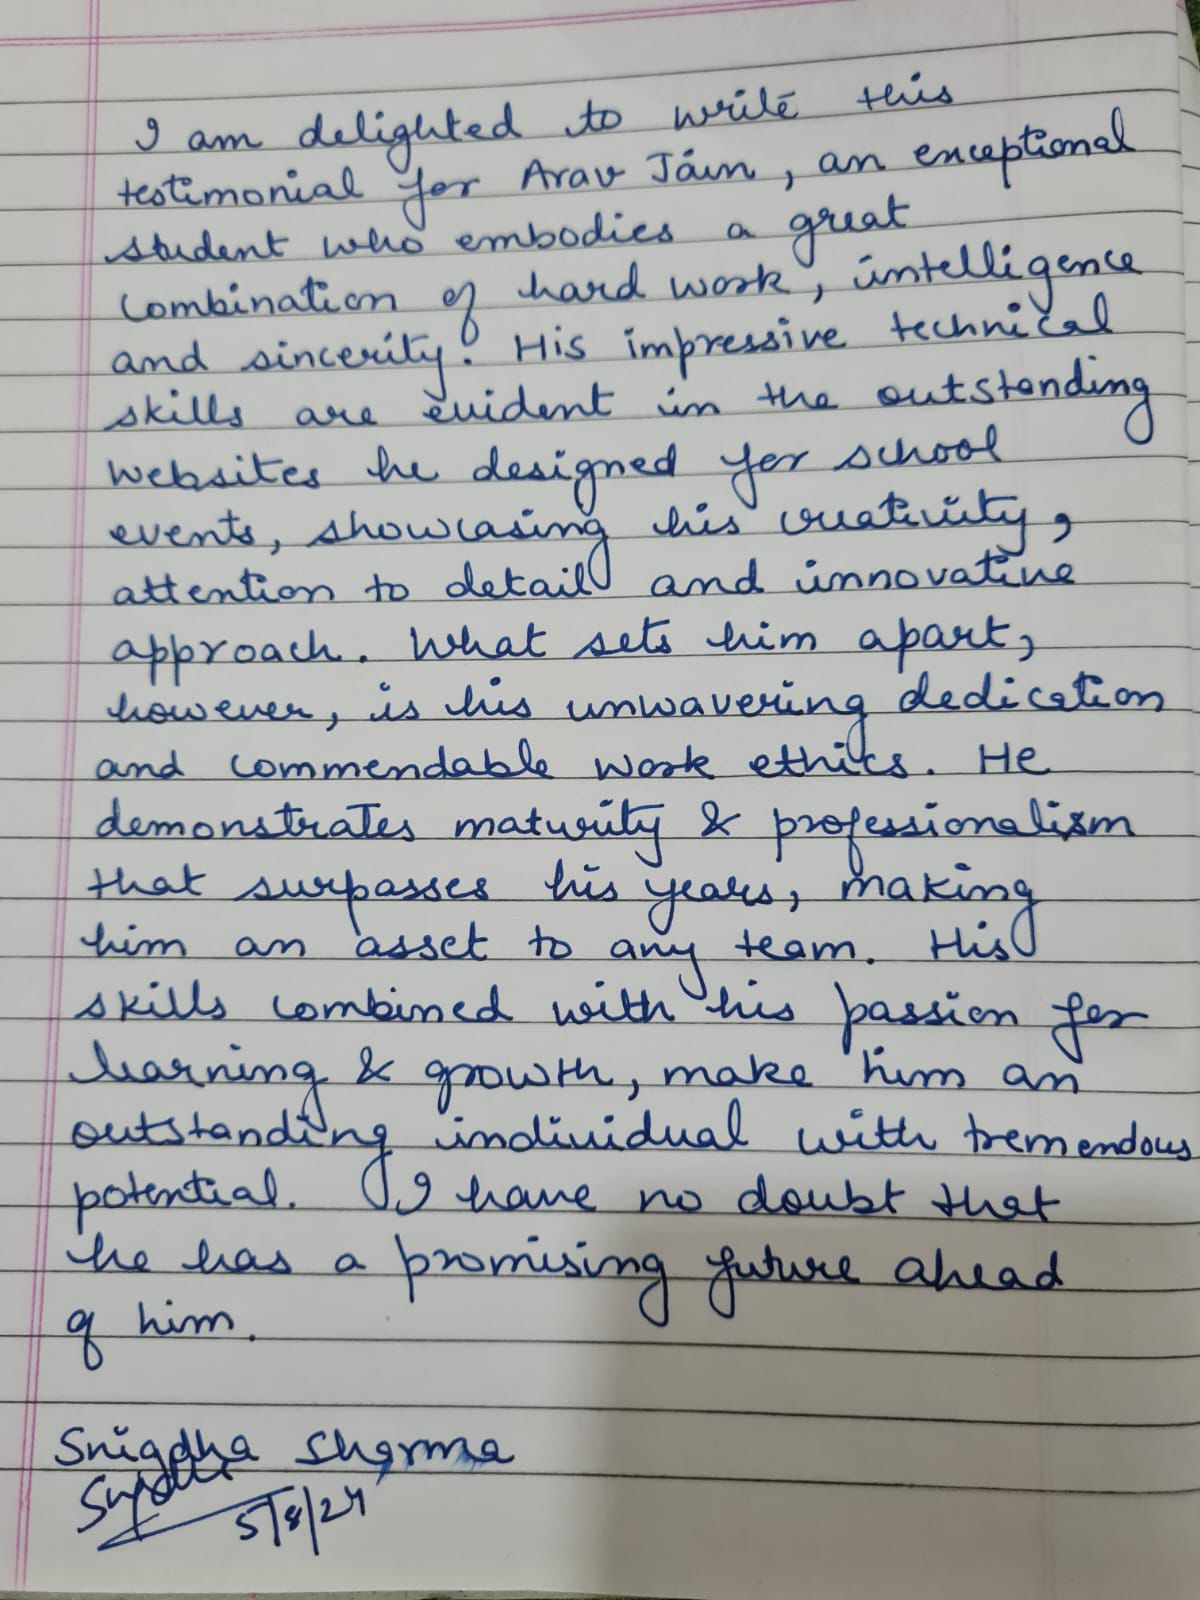 I am delighted to write this
testimonial for Arav Jain, an exceptional
student who embodies a great
combination of hard work, intelligence
and sincerity. His impressive technical
skills are evident in the outstanding
websites he designed for school
events, showcasing his creativity,
attention to detail and innovative
approach. What sets him apart,
however, is his unwavering dedication
and commendable work ethics. He
demonstrates maturity & professionalism
that surpasses his years, making
him an asset to any team. His
skills combined with his passion for
learning & growth, make him an
outstanding individual with tremendous
potential. I have no doubt that
he has a promising future ahead
of him.
Snigdha Sharma
5/8/24